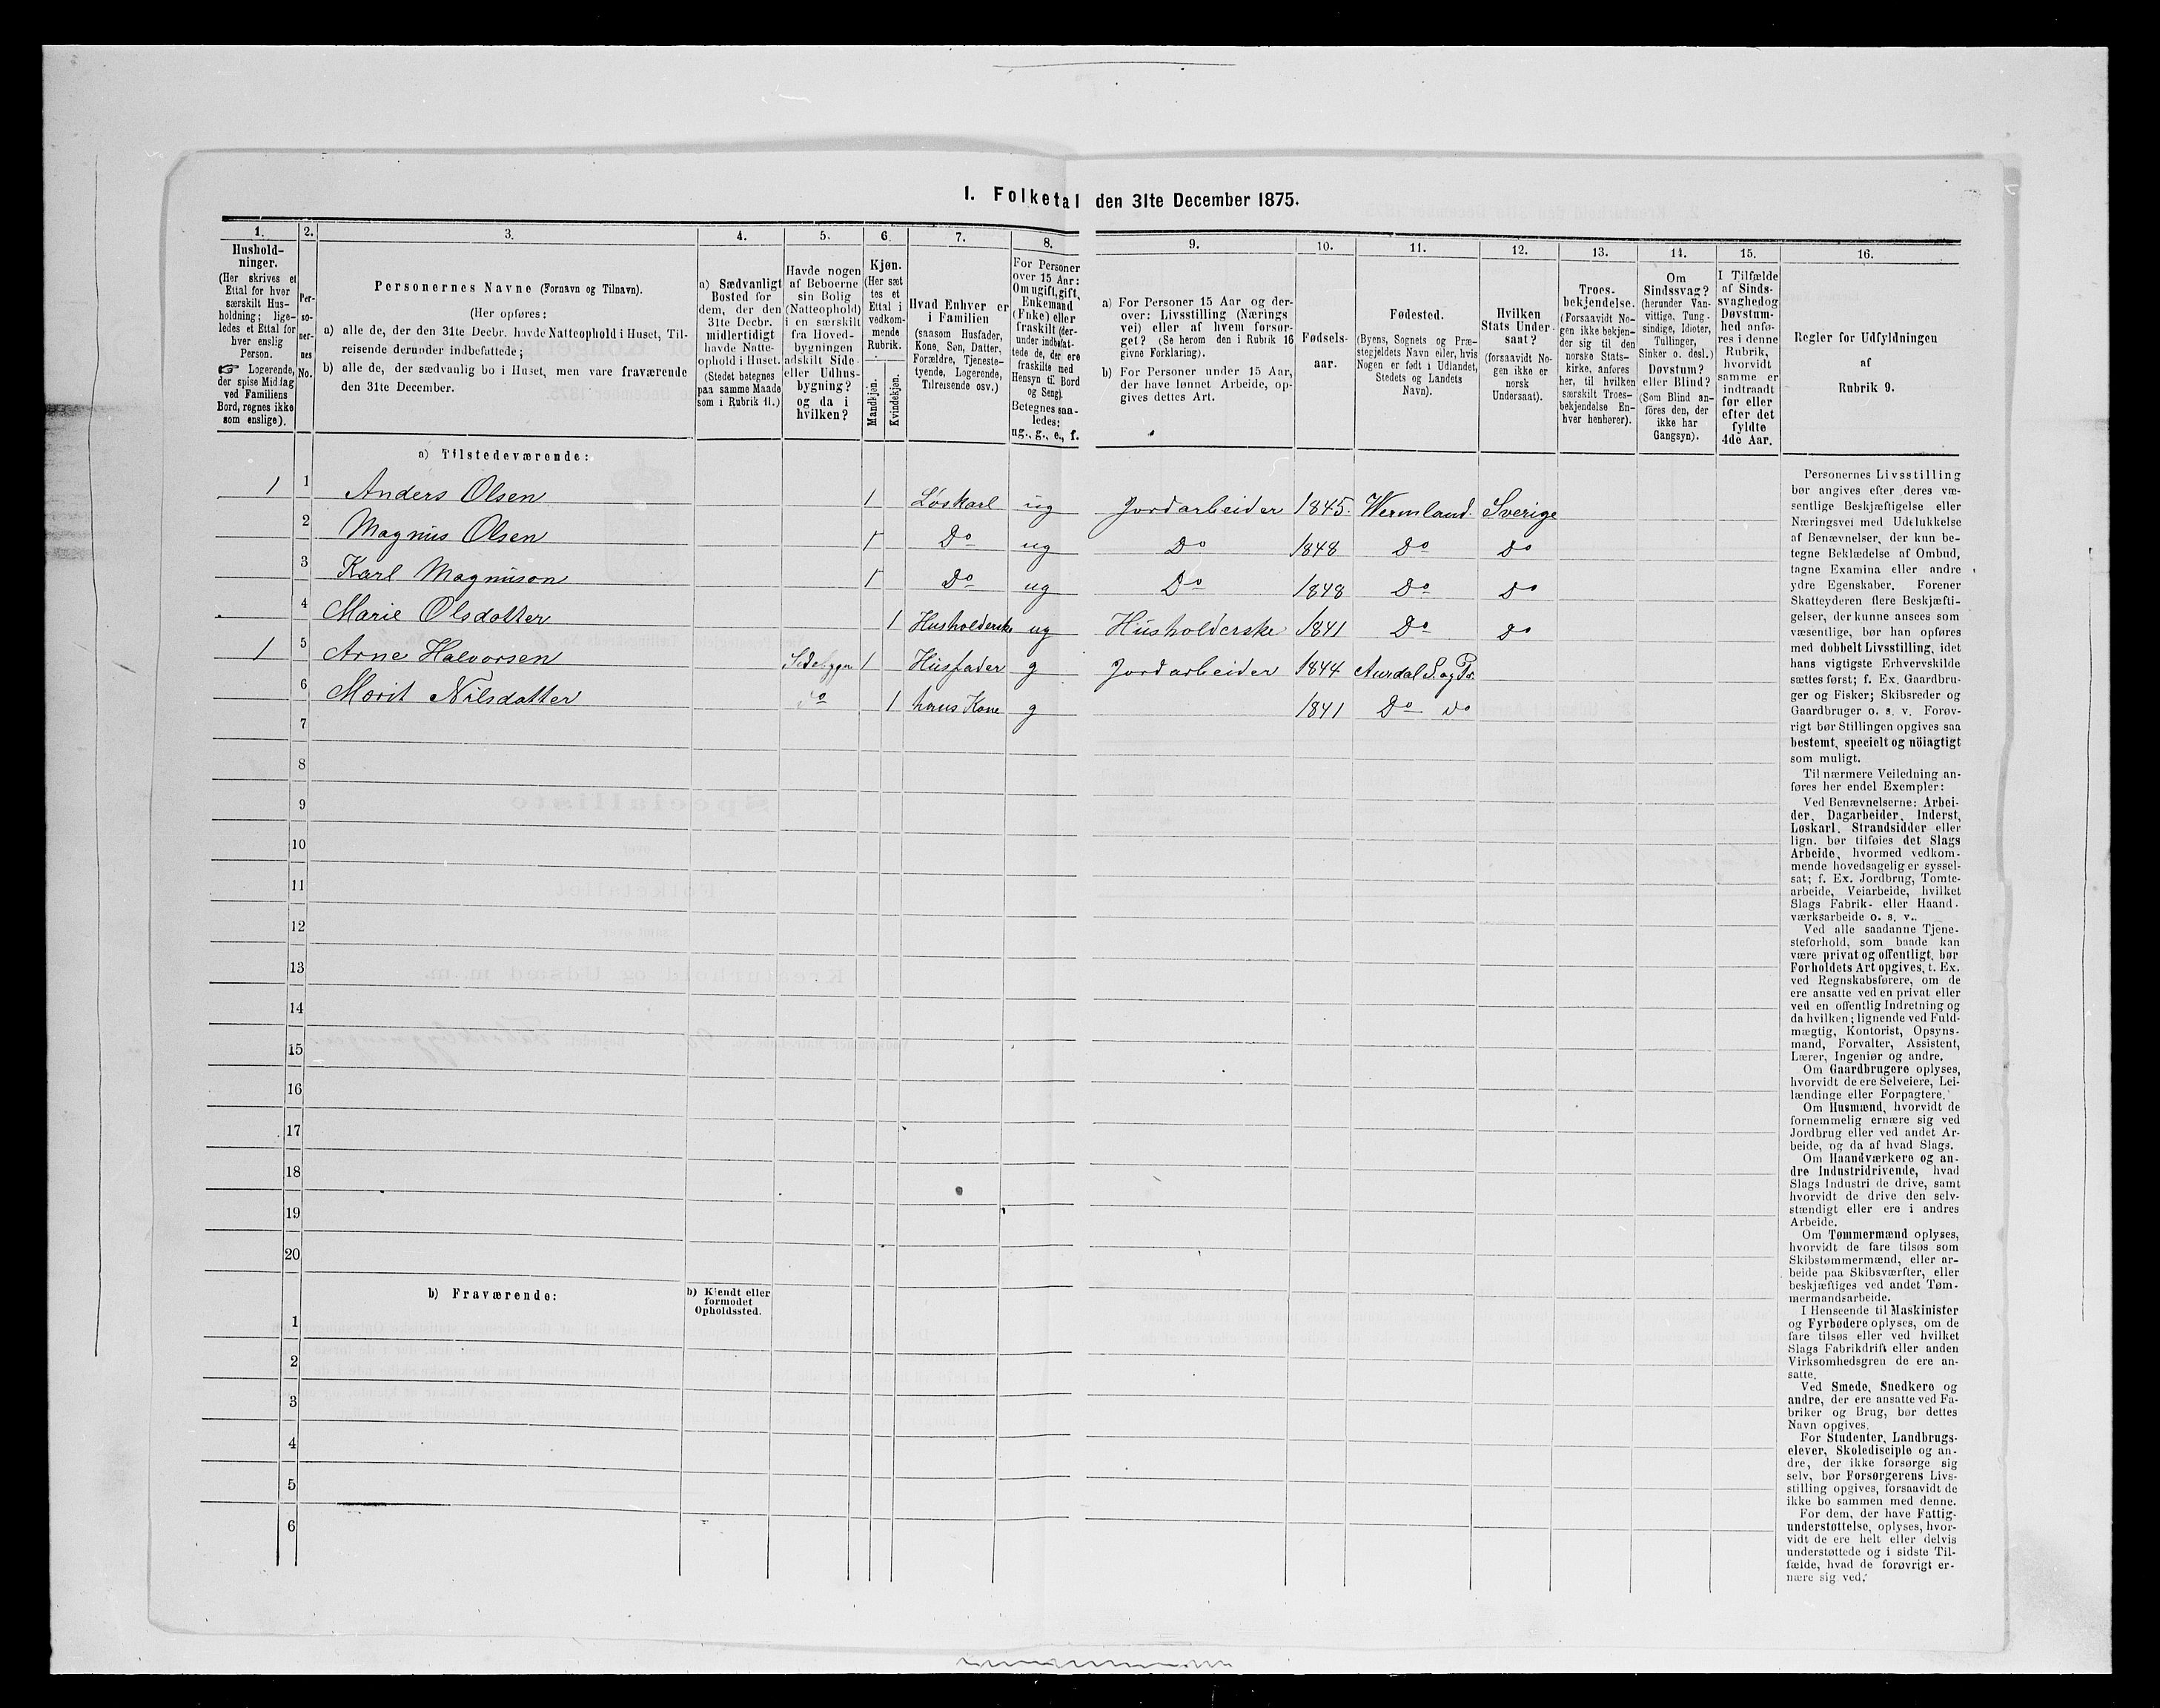 I. Folketal den 31te December 1875.
1.
Hushold-
ninger.
(Her skrives et
Ettal for hver
særskilt Hus-
holdning; lige-
ledes et Ettal for
hver enslig
Person.
☞ Logerende,
der spise Middag
ved Familiens
Bord, regnes ikke
som enslige).
2.
Per-
so-
ner-
nes
No.
3.
Personernes Navne (Fornavn og Tilnavn).
(Her opføres:
a) alle de, der den 31te Decbr. havde Natteophold i Huset, Til-
reisende derunder indbefattede;
b) alle de, der sædvanlig bo i Huset, men vare fraværende
den 31te December.
4.
a) Sædvanligt
Bosted for
dem, der den
31te Decbr.
midlertidigt
havde Natte-
ophold i Huset.
(Stedet betegnes
paa samme Maade
som i Rubrik 11.)
5.
Havde nogen
af Beboerne
sin Bolig
(Natteophold)
i en særskilt
fra Hoved-
bygningen
adskilt Side-
eller Udhus-
bygning?
og da i
hvilken?
6.
Kjøn.
(Her sæt
tes et
Ettal i
vedkom-
mende
Rubrik.
Mandkjøn.
Kvindekjøn.
7.
Hvad Enhver er
i Familien
(saasom Husfader,
Kone, Søn, Datter,
Forældre, Tjeneste-
tyende, Logerende,
Tilreisende osv.)
8.
For Personer
over 15 Aar:
Om ugift, gift,
Enkemand
(Enke) eller
fraskilt (der-
under indbefat-
tede de, der ere
fraskilte med
Hensyn til Bord
og Seng).
Betegnes saa-
ledes:
ug., g., e., f.
9.
a) For Personer 15 Aar og der-
over: Livsstilling (Nærings
vei) eller af hvem forsør-
get? (Se herom den i Rubrik 16
givne Forklaring).
b) For Personer under 15 Aar,
der have lønnet Arbeide, op-
gives dettes Art.
10.
Fødsels-
aar.
11.
Fødested.
(Byens, Sognets og Præ-
stegjeldets Navn eller, hvis
Nogen er født i Udlandet,
Stedets og Landets
Navn).
12.
Hvilken
Stats Under-
saat?
(forsaavidt No-
gen ikke er
norsk
Undersaat).
13.
Troes-
bekjendelse.
(Forsaavidt No-
gen ikke bekjen-
der sig til den
norske Stats-
kirke, anføres
her, til hvilken
særskilt Troes-
bekjendelse En-
hver henhører).
14.
Om
Sindssvag?
(herunder Van-
vittige, Tung-
sindige, Idioter,
Tullinger,
Sinker o. desl.)
Døvstum?
eller Blind?
(Som Blind an-
föres den, der
ikke har
Gangsyn).
15.
I Tilfælde
af Sinds-
svaghed og
Døvstum-
hed anfø-
res i denne
Rubrik,
hvorvidt
samme er
indtraadt
før eller
efter det
fyldte
4de Aar.
16.
Regler for Udfyldningen
af
Rubrik 9.
a) Tilstedeværende:
1 1 Anders Olsen 1 Løskarl ug Jordarbeider 1845. Wermland. Sverige
2 Magnus Olsen 1 Do ug Do 1848 Do Do
3 Karl Magnuson 1 Do ug Do 1848 Do Do
4 Marie Olsdatter 1 Husholderske ug Husholderske 1841 Do Do
1 5 Arne Halvorsen 1 Husfader g Jordarbeider 1844 Aurdal S. og Pr.
6 Marit Nilsdatter Do 1 hans Kone g 1841 Do Do
7
8
9
10
11
12
13
14
15
16
17
18
19
20
b) Fraværende:
b) Kjendt eller
formodet
Opholdssted.
1
2
3
4
5
6
Personernes Livsstilling
bør angives efter deres væ-
sentlige Beskjæftigelse eller
Næringsvei med Udelukkelse
af Benævnelser, der kun be-
tegne Beklædelse af Ombud,
tagne Examina eller andre
ydre Egenskaber. Forener
Skatteyderen flere Beskjæfti-
gelser, der kunne ansees som
væsentlige, bør han opføres
med dobbelt Livsstilling, idet
hans vigtigste Erhvervskilde
sættes først; f. Ex. Gaardbru-
ger og Fisker; Skibsreder og
Gaardbruger o. s. v. Forøv-
rigt bør Stillingen opgives saa
bestemt, specielt og nöiagtigt
som muligt.
Til nærmere Veiledning an-
føres her endel Exempler:
Ved Benævnelserne: Arbei-
der, Dagarbeider, Inderst,
Løskarl, Strandsidder eller
lign. bør tilføies det Slags
Arbeide, hvormed vedkom-
mende hovedsagelig er syssel-
sat; f. Ex. Jordbrug, Tomte-
arbeide, Veiarbeide, hvilket
Slags Fabrik- eller Haand-
værksarbeide o. s. v.
Ved alle saadanne Tjene-
steforhold, som baade kan
være privat og offentligt, bør
Forholdets Art opgives, t. Ex.
ved Regnskabsførere, om de
ere ansatte ved en privat eller
ved en offentlig Indretning og
da hvilken; lignende ved Fuld-
mægtig, Kontorist, Opsyns-
mand, Forvalter, Assistent,
Lærer, Ingeniør og andre.
Om Gaardbrugere oplyses,
hvorvidt de ere Selveiere, Lei-
lændinge eller Forpagtere.
Om Husmænd, hvorvidt de
fornemmelig ernære sig ved
Jordbrug eller ved andet Ar-
beide, og da af hvad Slags.
Om Haandværkere og an-
dre Industridrivende, hvad
Slags Industri de drive, samt
hvorvidt de drive den selv-
stændigt eller ere i andres
Arbeide.
Om Tømmermænd oplyses,
hvorvidt de fare tilsøs som
Skibstømmermænd, eller ar-
beide paa Skibsværfter, eller
beskjæftiges ved andet Tøm-
mermandsarbeide.
I Henseende til Maskinister
og Fyrbødere oplyses, om de
fare tilsøs eller ved hvilket
Slags Fabrikdrift eller anden
Virksomhedsgren de ere an-
satte.
Ved Smede, Snedkere og
andre, der ere ansatte ved Fa-
briker og Brug, bør dettes
Navn opgives.
For Studenter, Landbrugs-
elever, Skoledisciple og an-
dre, der ikke forsørge sig
selv, bør Forsørgerens Livs-
stilling opgives, forsaavidt de
ikke bo sammen med denne.
For dem, der have Fattig-
understøttelse, oplyses, hvor-
vidt de ere helt eller delvis
understøttede og i sidste Til-
fælde, hvad de forøvrigt er-
nære sig ved.